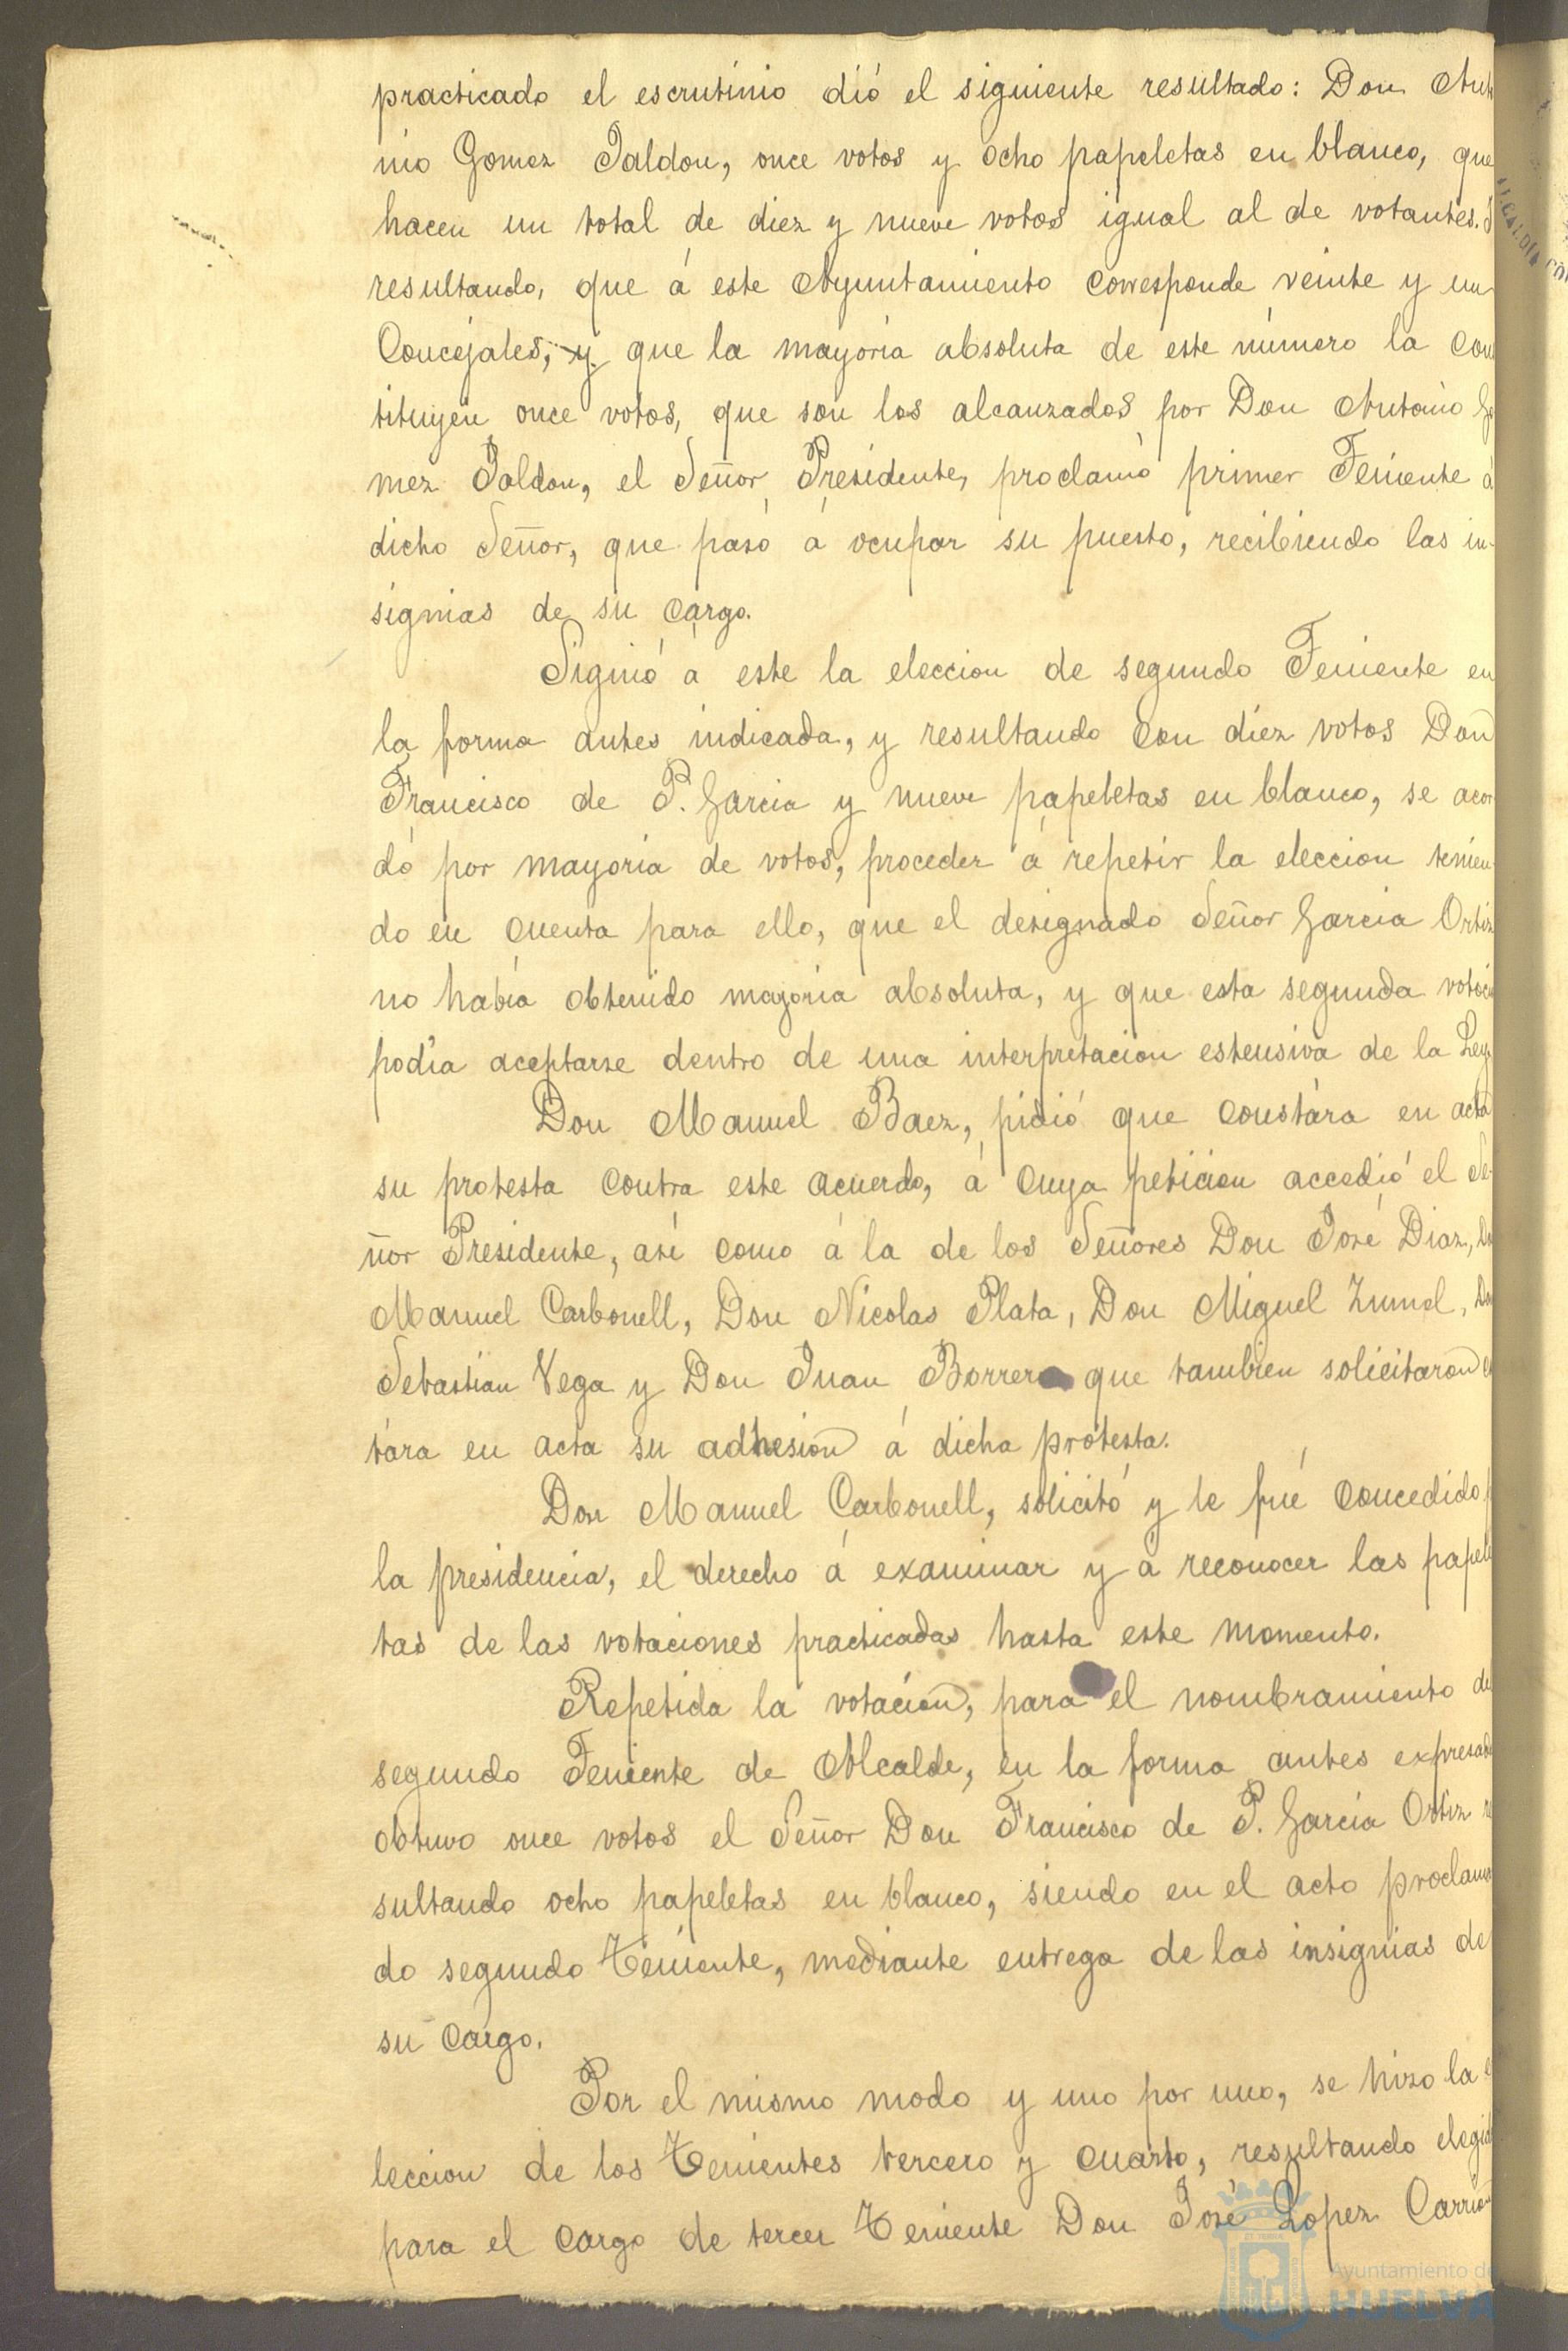 practicado el escrutinio dió el siguiente resultado: Don Anto
nio Gomez Jaldon, once votos y ocho papeletas en blanco, que
hacen un total de diez y nueve votos igual al de votantes.
resultando, que á este Ayuntamiento corresponde veinte y un
Concejales, y que la mayoria absoluta de este número la cons
tituyen once votos, que son los alcanzados por Don Antonio Go
mez Jaldon, el Señor Presidente, proclamó primer Teniente á
dicho Señor, que pasó á ocupar su puesto, recibiendo las in-
signias de su cargo.
Siguió á este la eleccion de segundo Teniente en
la forma antes indicada, y resultando con diez votos Don
Francisco de P. Garcia y nueve papeletas en blanco, se acor
dó por mayoria de votos, proceder á repetir la eleccion tenien
do en cuenta para ello, que el designado Señor Garcia Ortiz
no habia obtenido mayoria absoluta, y que esta segunda votació
podia aceptarse dentro de una interpretacion estensiva de la Ley.
Don Manuel Baez, pidió que constára en acta
su protesta contra este acuerdo, á cuya peticion accedió el Se-
ñor Presidente, asi como á la de los Señores Don José Diaz, Don
Manuel Carbonell, Don Nicolas Plata, Don Miguel Zumel, Don
Sebastian Vega y Don Juan Borrero que tambien solicitaron
tára en acta su adhesion á dicha protesta.
Don Manuel Carbonell, solicitó y le fué concedido p
la presidencia, el derecho á examinar y á reconocer las papele
tas de las votaciones practicadas hasta este momento.
Repetida la votacion, para el nombramiento de
segundo Teniente de Alcalde, en la forma antes expresada
obtuvo once votos el Señor Don Francisco de P. Garcia Ortiz re
sultando ocho papeletas en blanco, siendo en el acto proclama
do segundo Teniente, mediante entrega de las insignias de
su cargo.
Por el mismo modo y uno por uno, se hizo la e
leccion de los Tenientes tercero y cuarto, resultando elegido
para el cargo de tercer Teniente Don José Lopez Carrion
Ayuntamiento de
HUELVA